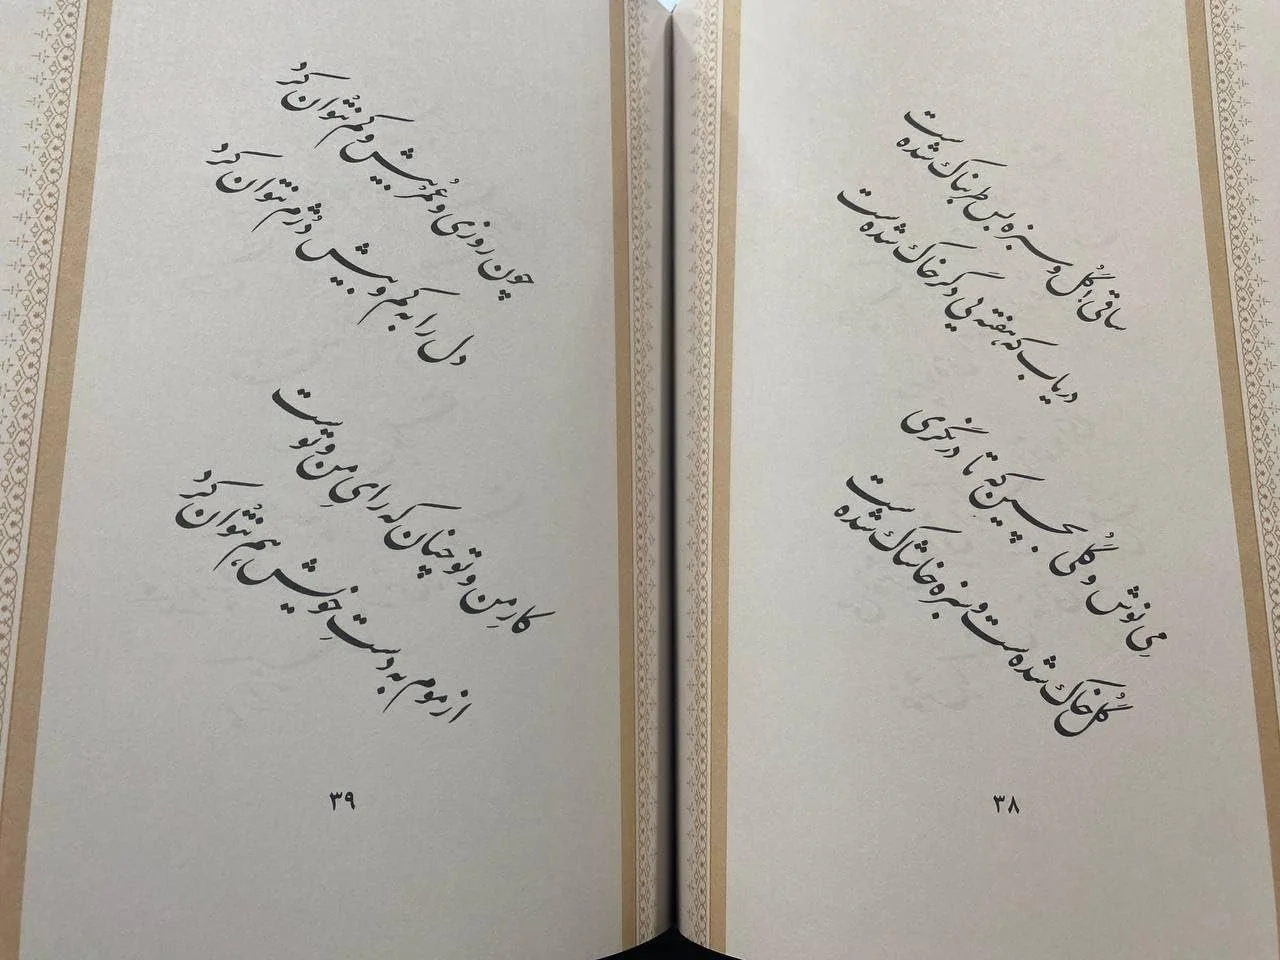 ساقی! گُل و سبزه بس طربناک شده‌ست
دریاب که هفته‌یی دگر خاک شده‌ست
مِی نوش و گُلی بچین که تا درنگری
گُل خاک شده‌ست و سبزه خاشاک شده‌ست
۳۸
چون روزی و عُمر بیش و کم نتْوان کرد
دل را به کم و بیش دُژم نتْوان کرد
کارِ من و تو چنان که رایِ من و توست
از موم به دستِ خویش هم نتْوان کرد
۳۹